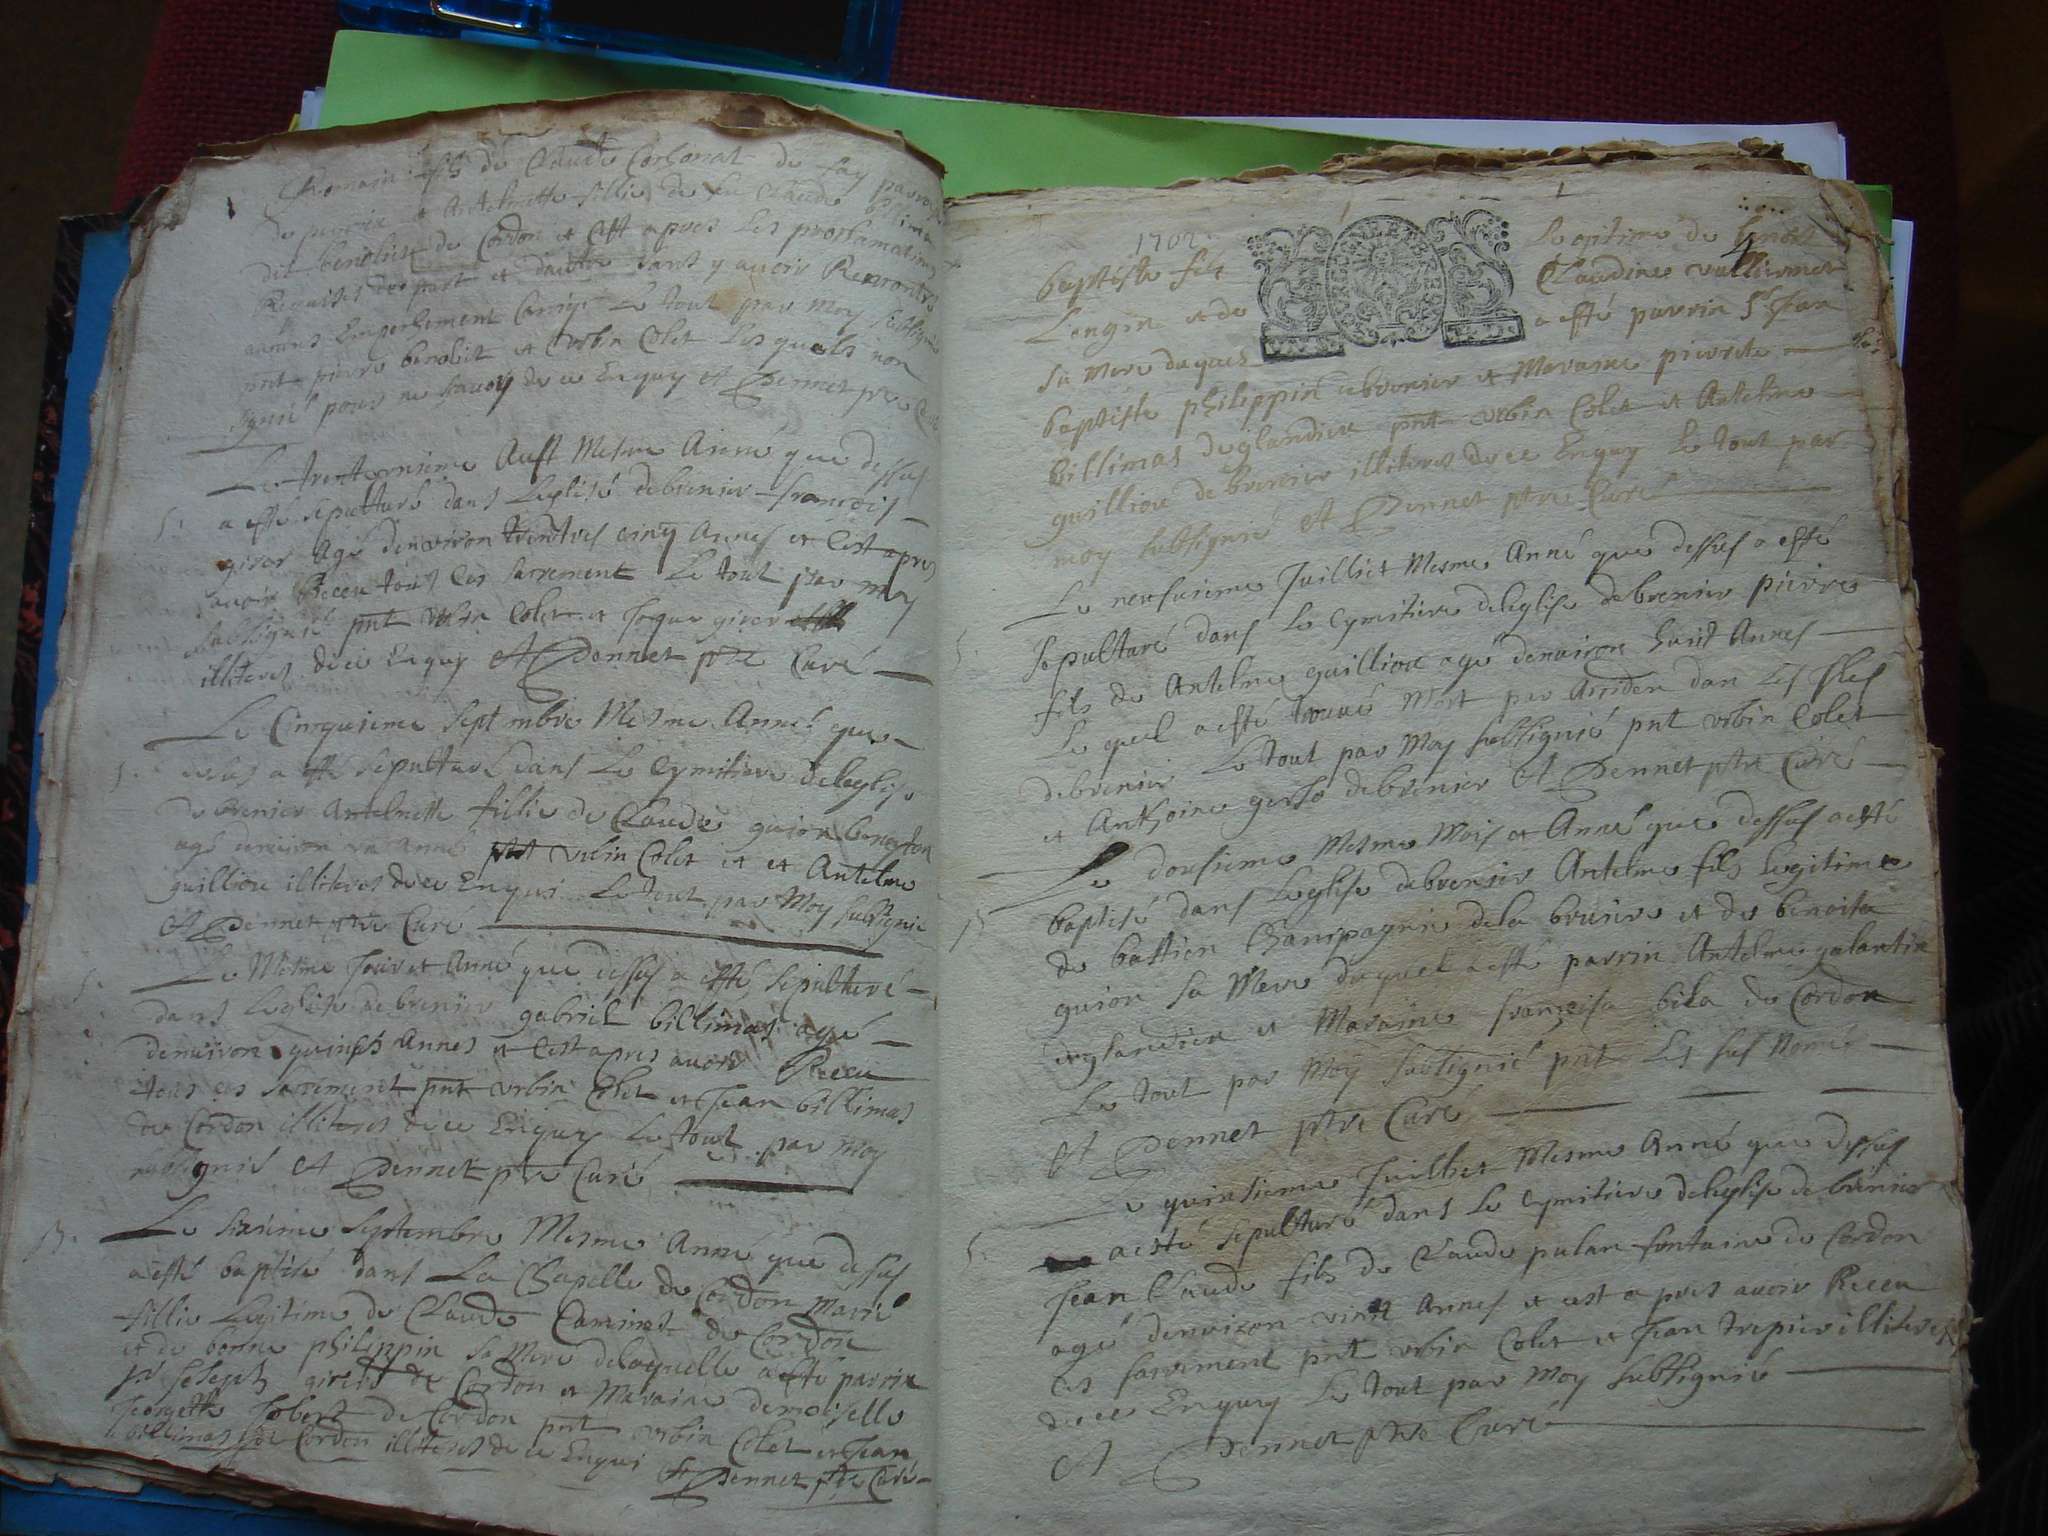 Romain fils de Claude Corbonat de fay parroisse
de peyrin et Antelmette fillie de feu Claude billimas
dit benoist de Cordon et Cest apres les proclamations
Requises de part et dautre sans y avoir Rencontré
aucuns Enpechement Canniq Le tout par moy subsigné
pnt pierre benoist et Urbin Colet Lesquels non
signé pour ne savoir de ce Enquy et A Dennet ptre Curé
Le trente unsieme Aust Mesme Anné que dessus
S. a esté sepulturé dans Leglise debrenier francois
girer Agé denviron trentres cinq Annes et Cest apres
avoir Receu tous Ces sacrement Le tout par moy
subsigné pnt Urbin Colet et Joque girer
illiteres de ce Enquy A Dennet ptre Curé
Le Cinquieme Septembre Mesme Anné que
S. desus a esté sepulturé dans Le Cymitiere deleglise
de brenier Antelmette fillie de Claude guion bonerton
agé denviron un anné pnt Urbin Colet et et Antelme
guilliou illiteres de ce Enqui Le tout par Moy subsigné
A Dennet ptre Curé
S. Le Mesme Jour et Anné que dessus a esté sepulturé
dans Leglise debrenier gabriel billimas agé
denviron quinse Annes et Cest apres avoir Receu
tous ces sacrement pnt Urbin Colet et Jean billimas
de Cordon illiteres de ce Enquy Le tout par moy
subsignié A Dennet ptre Curé
B. Le sixieme Septembre Mesme Anné que dessus
a esté baptisé dans La Chapelle de Cordon Marie
fillie Legitime de Claude Caminet de Cordon
et de bonne philippin sa mere delaquelle a esté parrin
sr Joseph girerd de Cordon et Maraine demoiselle
Georgette Jobert de Cordon pnt Urbin Colet et Jean
billimas de Cordon illiteres de ce Enqui A Dennet ptre Curé
1702
4
baptiste fils Legitime de benoit
Longin et de Claudine vulliermet
sa mere duquel a esté parrin Sr Jean
baptiste philippin debrenier et Maraine pierrete
billimas deglandieu pnt Urbin Colet et Antelme
guilliou debrenier illiteres de ce Enquy Le tout par
moy subsigné A Dennet ptre Curé
Le neufsieme Juilliet Mesme Anné que dessus a esté
S. sepulturé dans Le Cymitiere deleglise debrenier pierre
fils de Antelme guilliou agé denviron huit Annes
Le quel a esté trouvé Mort par Acciden dan Les Isles
debrenier Le tout par Moy subsignié pnt Urbin Colet
et Anthoine gerbo debrenier A Dennet ptre Curé
Le dousieme Mesme Mois et Anné que dessus a esté
B baptisé dans Leglise debrenier Antelme fils Legitime
de bastien Champagnie dela bruiere et de benoite
guion sa Mere duquel a esté parrin Antelme galantin
deglandieu et Maraine françoise bila de Cordon
Le tout par Moy subsignié pnt Les sus Nomé
A Dennet ptre Curé
Le quinsieme Juilliet Mesme Anné que dessus
S. a esté sepulturé dans Le Cymitiere deleglise debrenier
Jean Claude fils de Claude pulan fontaine de Cordon
agé denviron vint Annes et cest apres avoir Receu
ces sacrement pnt Urbin Colet et Jean trepier illiteres
de ce Enquy Le tout par Moy subsignié
A Dennet ptre Curé